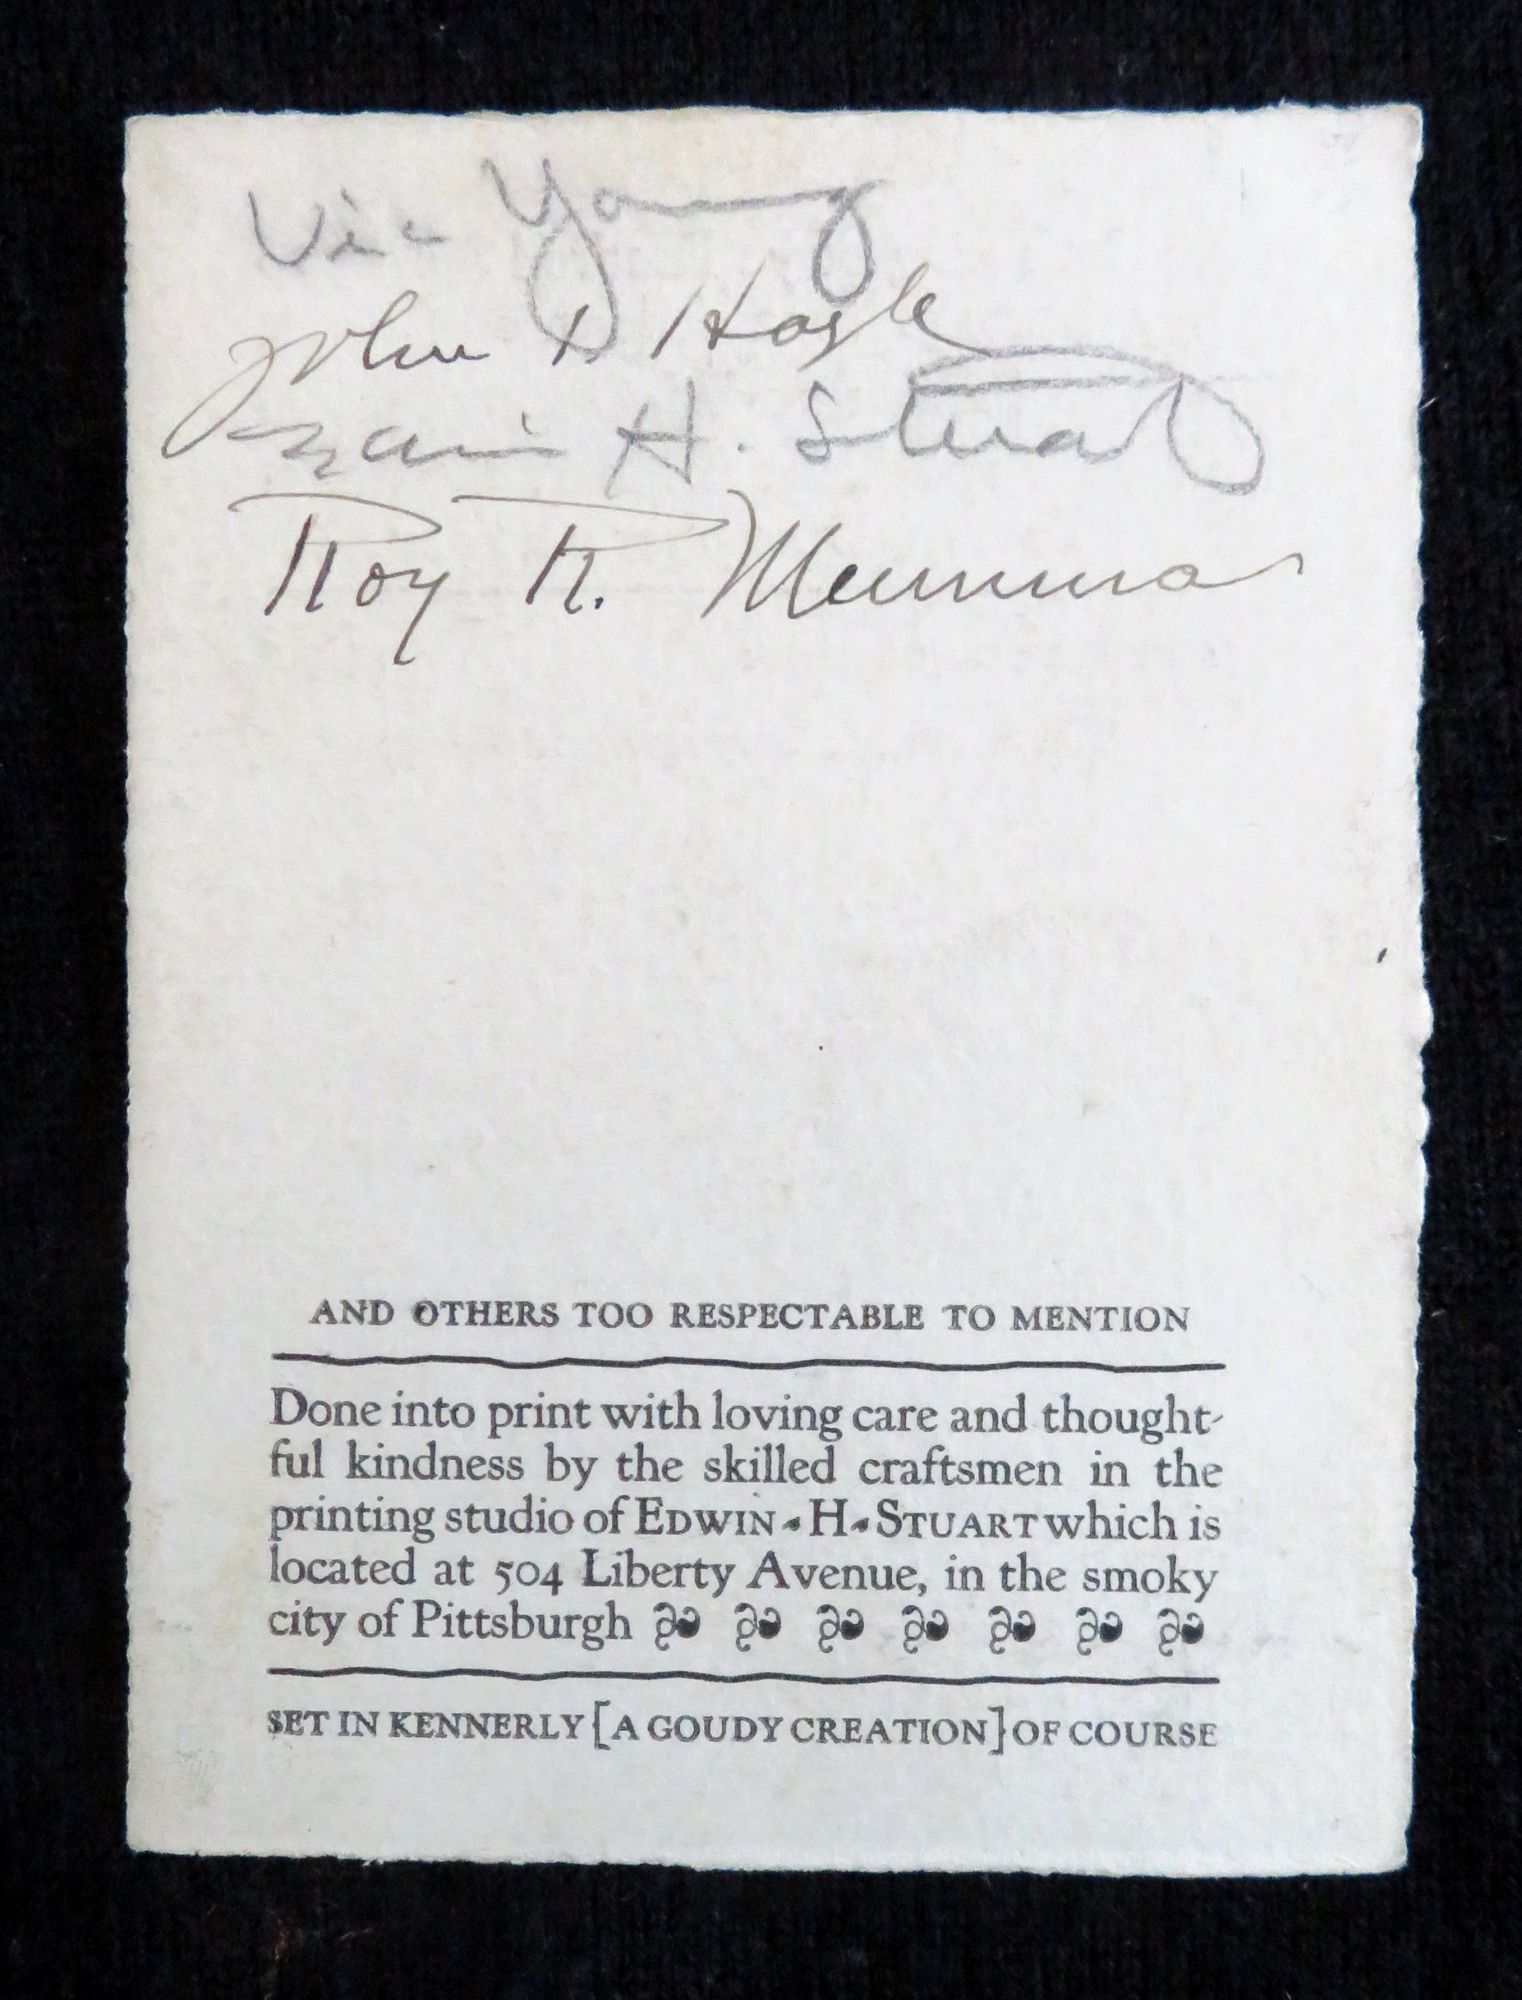 Vic Young
John D Hogle
H. Stuart
Roy R. Mumma
AND OTHERS TOO RESPECTABLE TO MENTION
Done into print with loving care and thought-
ful kindness by the skilled craftsmen in the
printing studio of EDWIN • H • STUART which is
located at 504 Liberty Avenue, in the smoky
city of Pittsburgh
SET IN KENNERLY [A GOUDY CREATION] OF COURSE